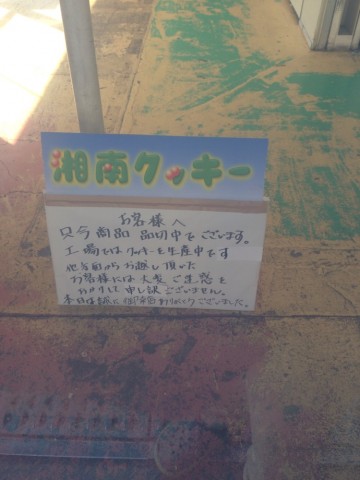 湘南クッキー
お客様へ
只今商品 品切中でございます。
工場ではクッキーを生産中です
お越し頂いた
お客様には大変ご迷惑を
おかけして申し訳ございません。
本日は誠に御来店ありがとうございました。